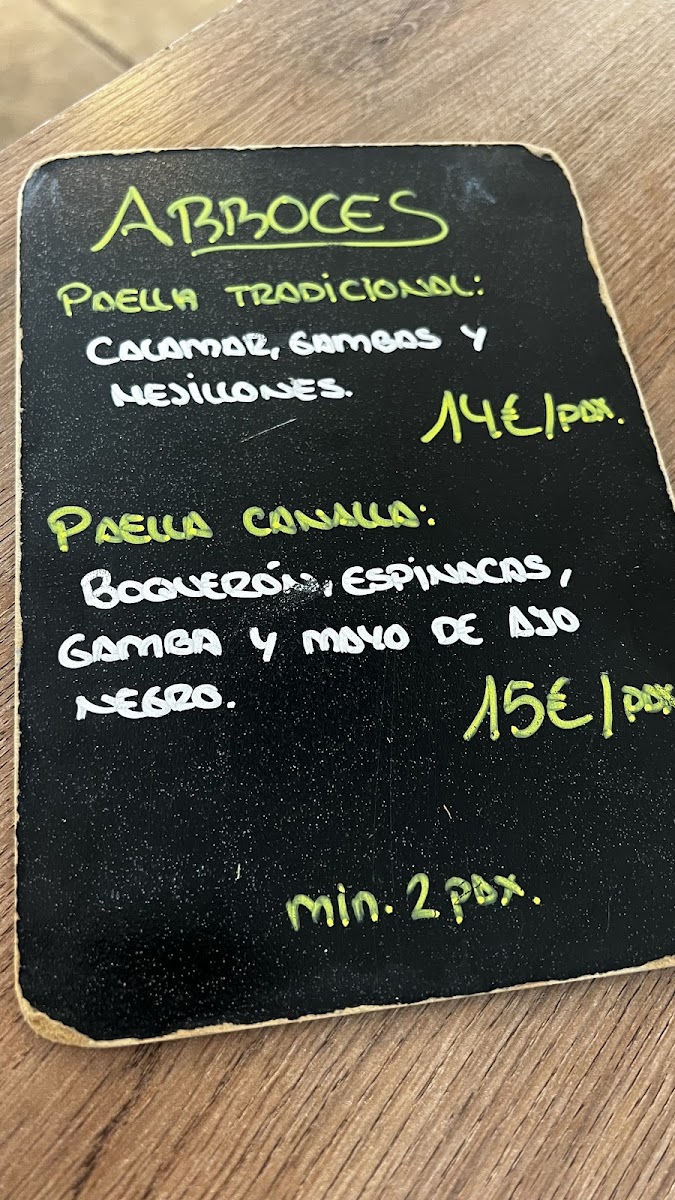 ARROCES
PAELLA TRADICIONAL:
CALAMAR, GAMBAS Y
MEJILLONES.
14€/pax.
PAELLA CANALLA:
BOQUERÓN, ESPINACAS,
GAMBA Y MAYO DE AJO
NEGRO.
15€/pax
min. 2 pax.